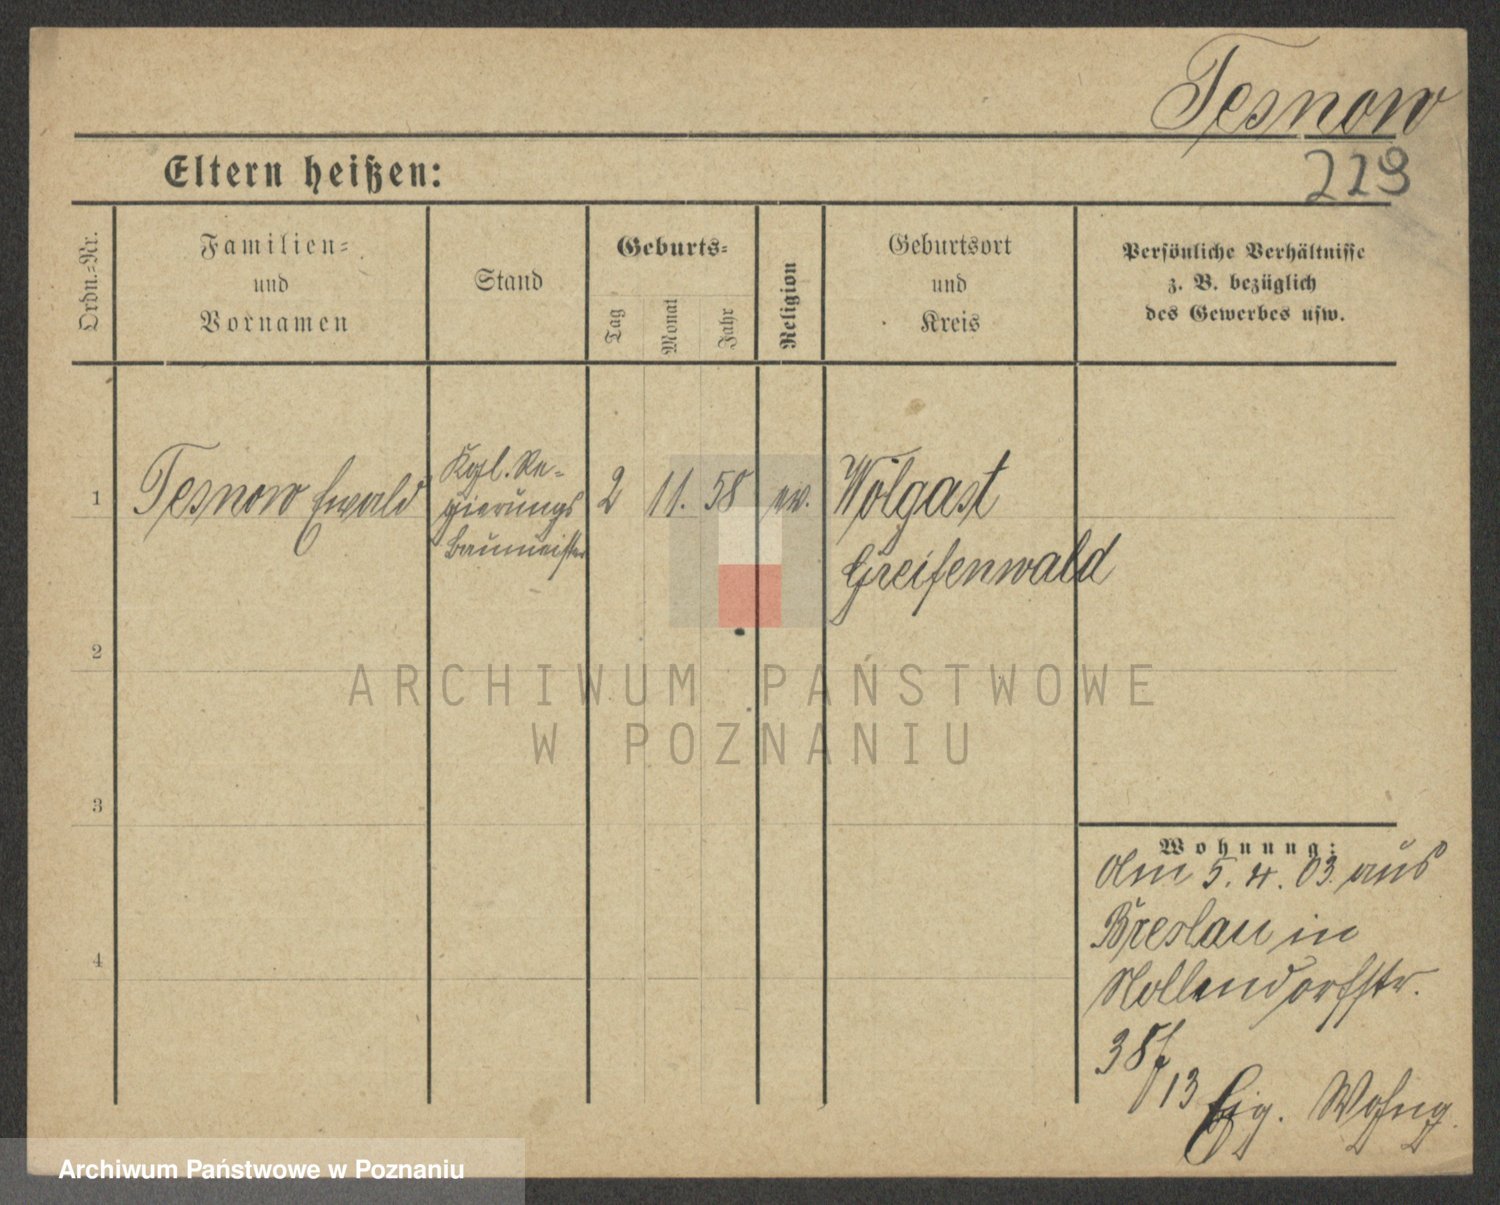 Tesnow
229
Eltern heißen:
Ordn.=Nr.
Familien=
und
Vornamen
Stand
Geburts=
Tag
Monat
Jahr
Religion
Geburtsort
und
Kreis
Persönliche Verhältnisse
z. B. bezüglich
des Gewerbes usw.
1
Tesnow Ewald
Kgl. Re=
gierungs
baumeister
2
11.
58
ev.
Wolgast
Greifenwald
2
3
4
Wohnung:
Am 5. 4. 03. aus
Breslau in
Nollendorfstr.
38/
13 Eig. Wohng.
ARCHIWUM PAŃSTWOWE
W POZNANIU
Archiwum Państwowe w Poznaniu